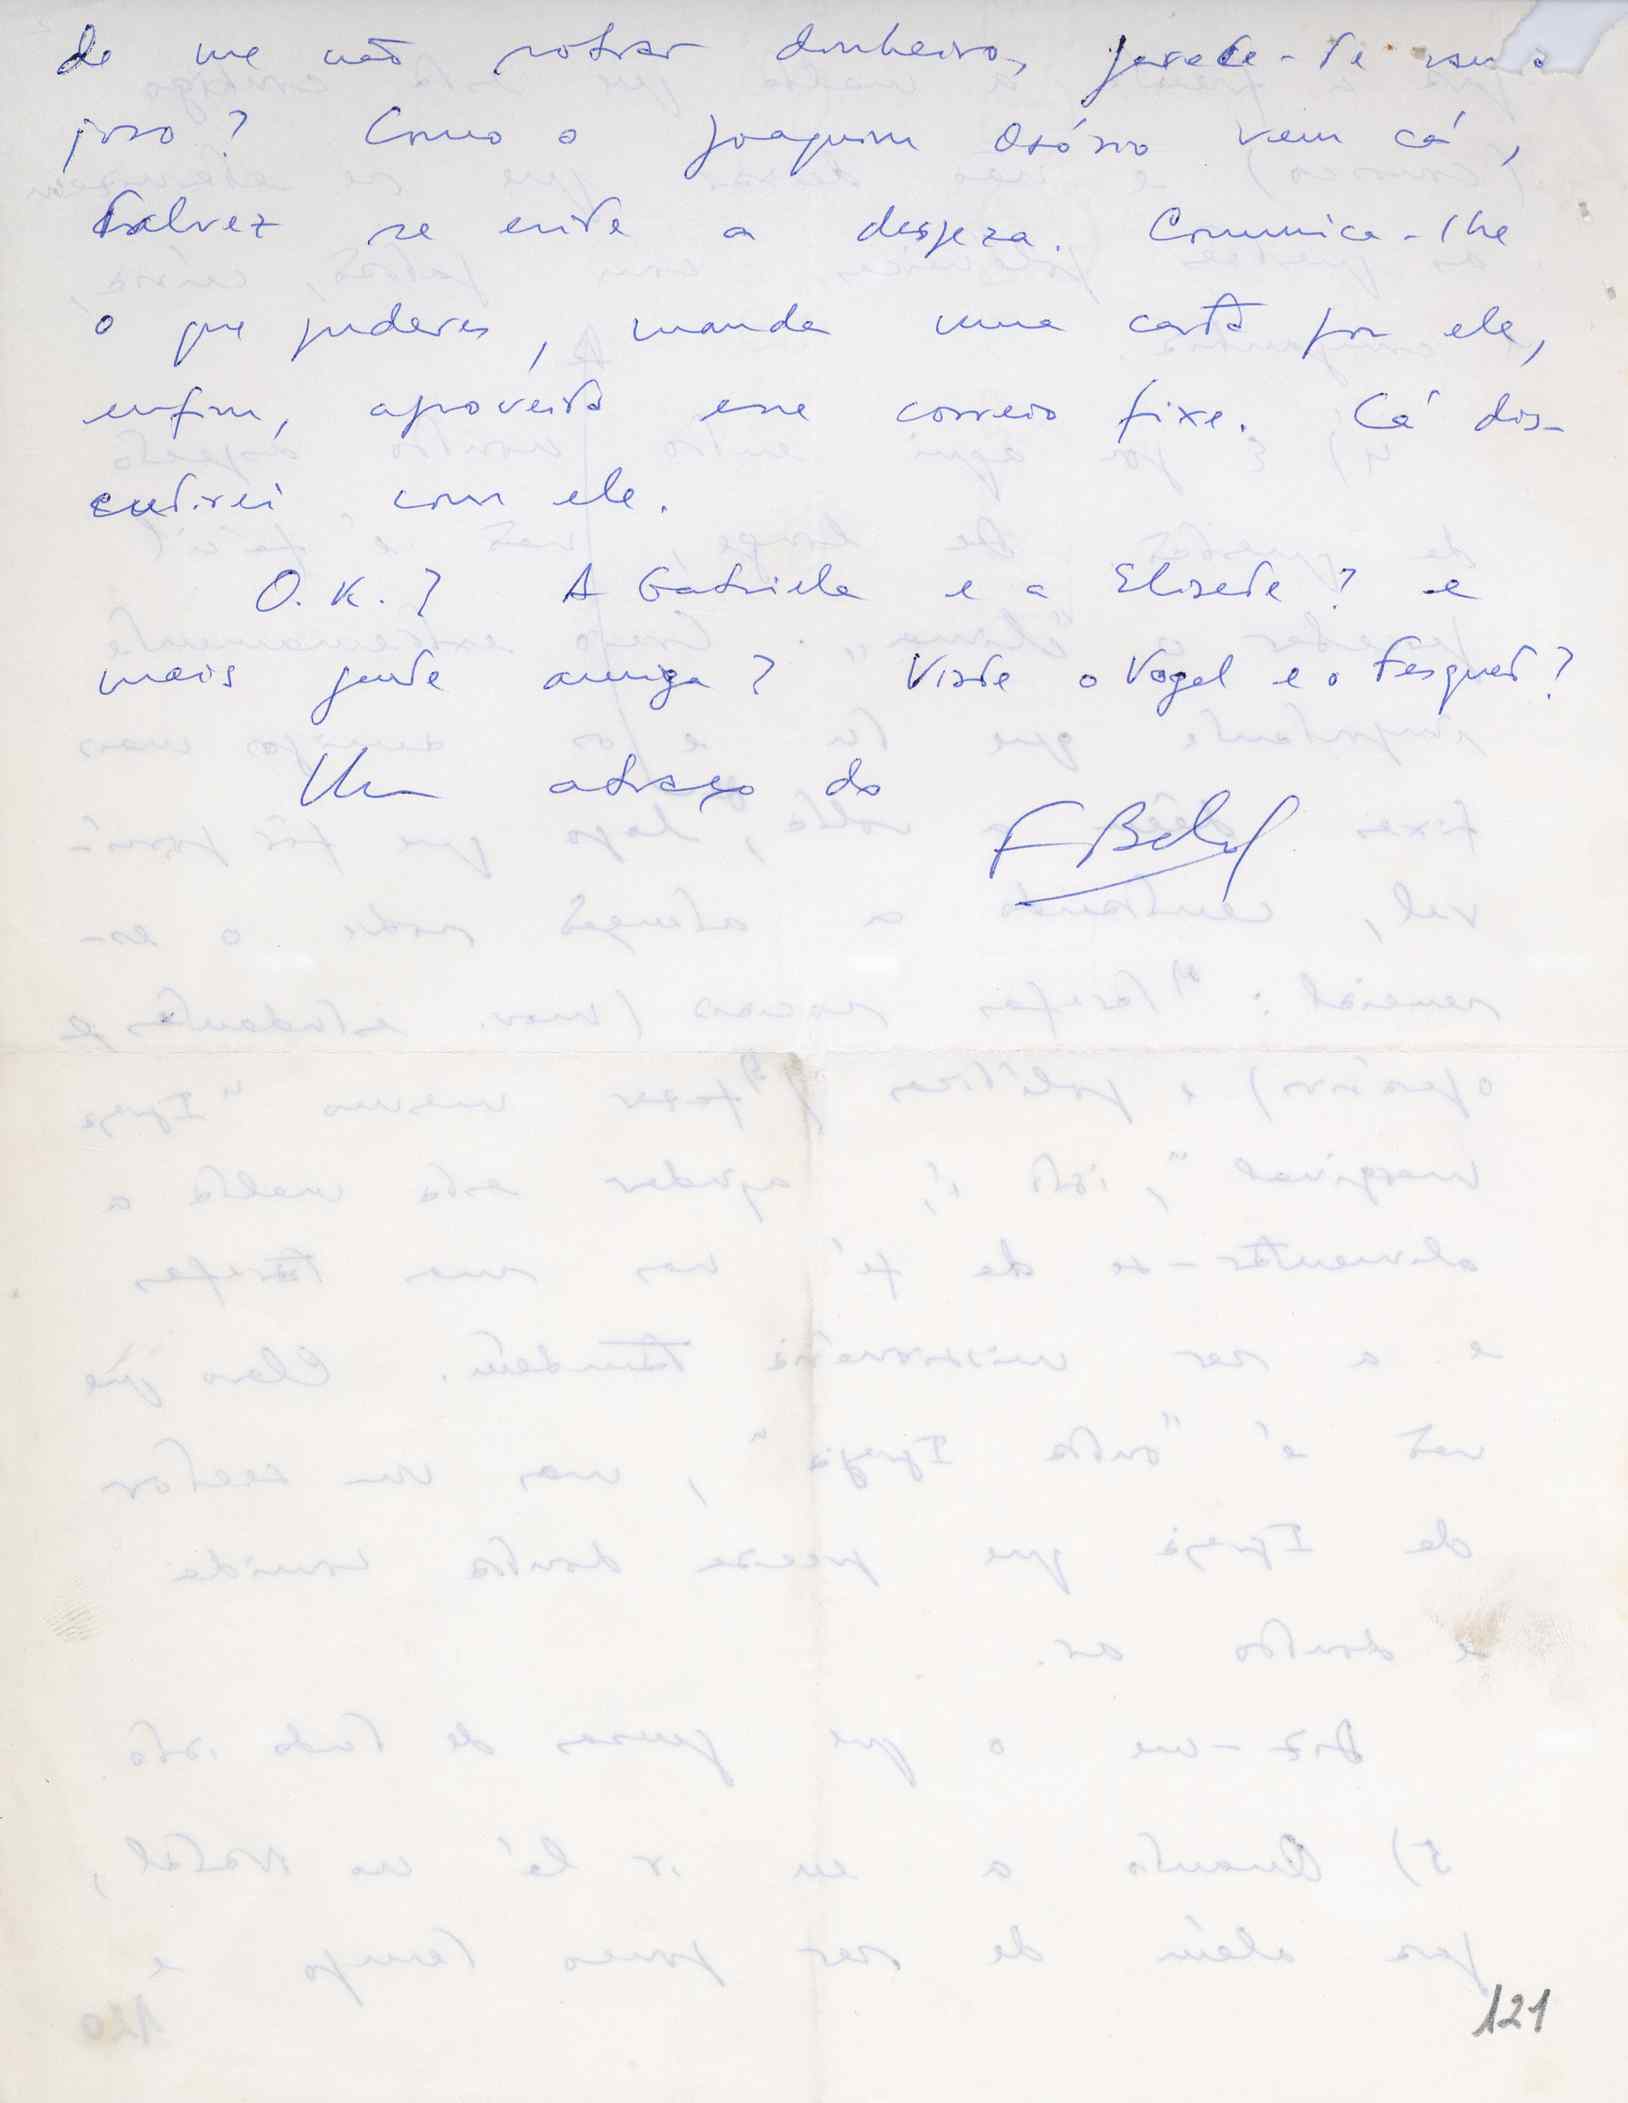 de me não sobrar dinheiro, parece-te vanta
joso? Como o Joaquim Osório vem cá,
talvez se evite a despeza. Comunica-lhe
o que puderes, manda uma carta por ele,
enfim, aproveita esse correio fixe. Cá dis-
cutirei com ele.
O.K.? A Gabriela e a Elisete? e
mais gente amiga? Viste o Vogel e o Fesquet?
Um abraço do
F Bel
121